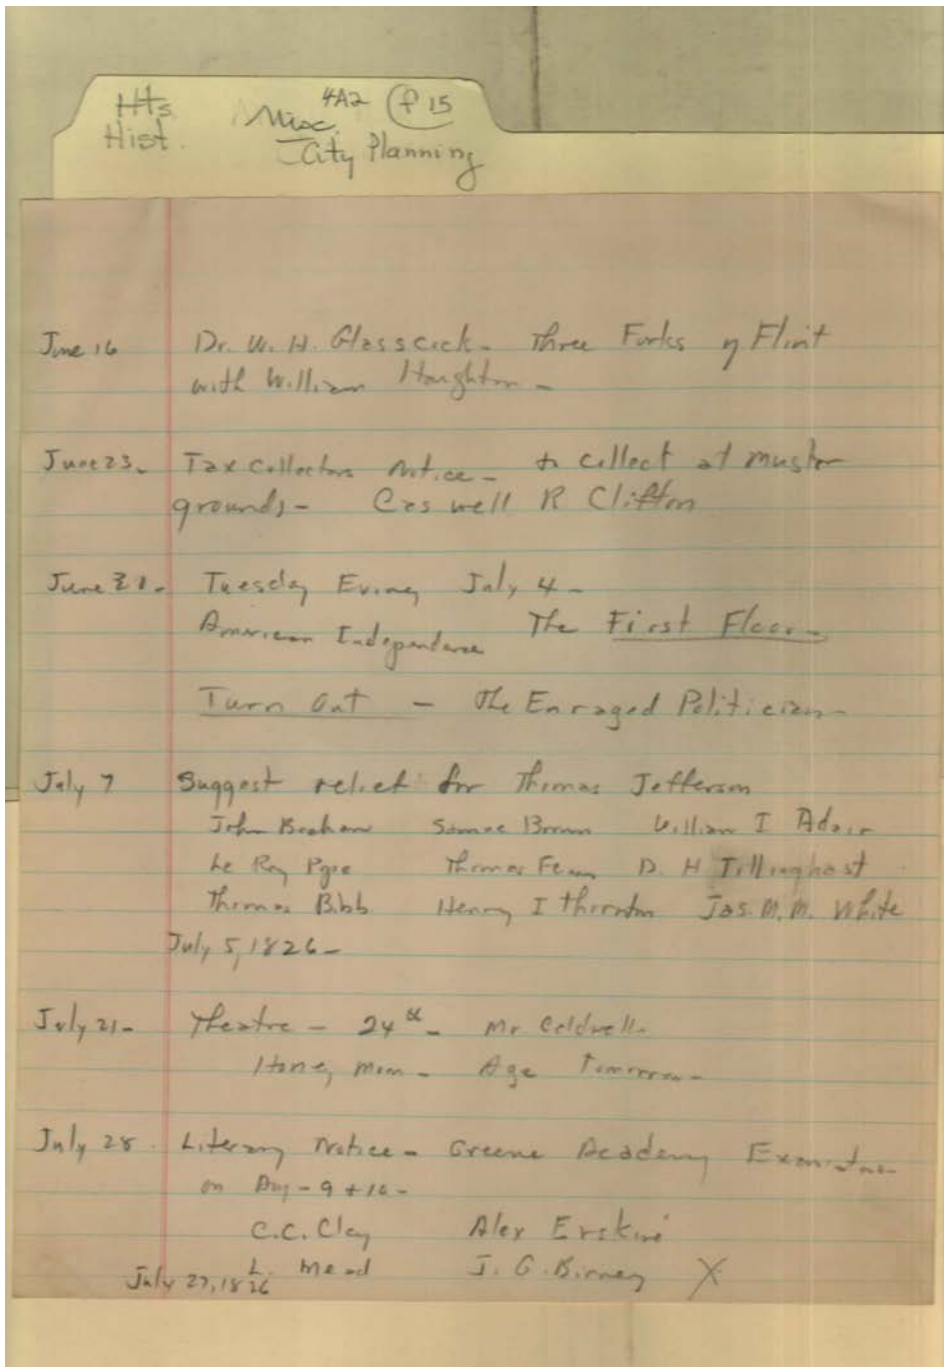 Hts. Hist.
4A2 f 15
Misc.
City Planning
June 16 Dr. W. H. Glasscock - Three Forks of Flint
with William Houghton -
June 23 - Tax Collectors Notice - to collect at muster
grounds - Caswell R Clifton
June 30 - Tuesday Evining July 4 -
American Independence The First Floor -
Turn Out - The Enraged Politician -
July 7 Suggest relief for Thomas Jefferson
John Brahan Samue Brown William I Adair
Le Roy Pope Thomas Fearn D. H Tillinghast
Thomas Bibb Henry I Thornton Jas. M. M. White
July 5, 1826 -
July 21 - Theatre - 24th - Mr Caldwell -
Honey moon - Age Tomorrow -
July 28 - Literary Notice - Greene Academy Examination
on Aug - 9 + 10 -
C. C. Clay Alex Erskine
L. Mead J. G. Birney X
July 27, 1826